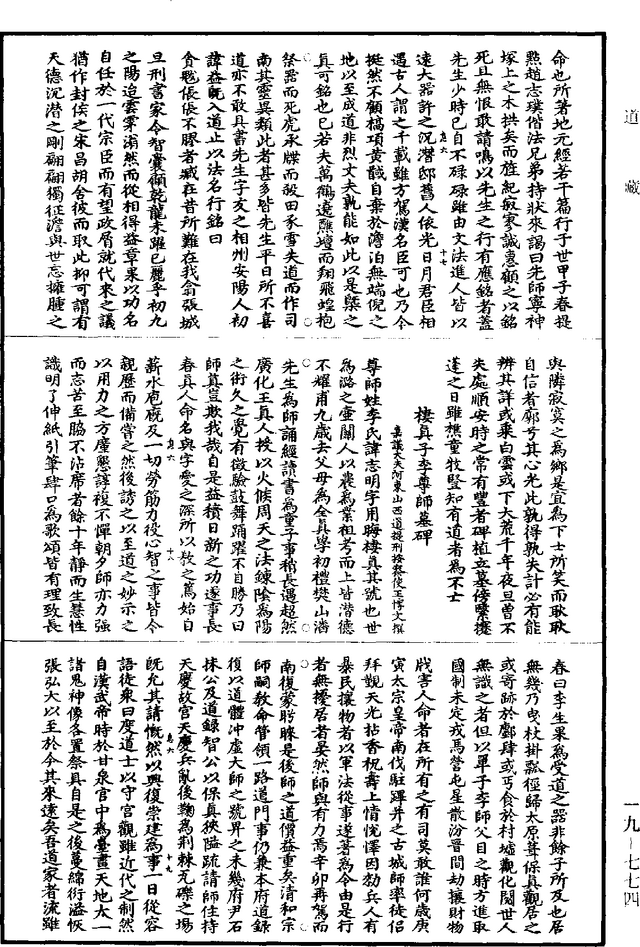 道藏
命也所著地元經若干篇行于世甲子春提
點趙志璞偕法兄弟持狀來謁曰先師寧神
塚上之木拱矣而旌紀寂寥誠裏顧之以銘
死且無恨敢請鳴以先生之行有應銘者蓋
先生少時已自不碌碌雖由文法進人皆以
遠大器許之沉潛邸舊人依光日月君臣相
遇古人謂之千載雖方駕漢名臣可也乃今
挺然不顧槁項黄馘自棄於澹泊無端倪之
地以至成道非烈丈夫孰能如此以是槩之
真可銘也已若夫萬鶴遶醮壇而翔飛蝗抱
祭器而死虎承牒而殺田禾雪失道而作司
南其靈異類此者甚多皆先生平日所不喜
道亦不敢具書先生字友之相州安陽人初
諱益既入道止以法名行銘曰
貪戰倀倀不膠者臧在昔所難在我翕張城
旦刑書家令智囊顑乾龍未躍已麗乎初九
之陽迨雲霈滃然而從相得益章果以功名
自任於一代宗臣而有望政屑就代來之議
猶作封侯之宋昌胡舍彼而取此抑可謂有
天德沉潛之剛翩翩獨征澹與世忘擁腫之
與隣寂寞之為鄉是宜為下士所笑而耿耿
自信者廓兮其心光此孰得孰失計必有能
辨其詳或乘白雲或下大荒千年夜旦曾不
失處順安時之常有豐者碑植立墓傍緊棲
蓬之日雖樵童牧豎知有道者為不亡
棲真子李尊師墓碑
嘉議大夫河東山西道提刑按察使王惲文撰
尊師姓李氏諱志明字用晦棲真其號也世
為潞之壷關人以農為業祖考而上皆潛德
不耀甫九歲去父母為全真學初禮樊山潘
先生為師誦經讀書為童子事稍長遇超然
廣化王真人授以火候周天之法鍊陰為陽
之術久之覺有徴驗鼓舞踊躍不自勝乃曰
師真豈欺我哉自是益積日新之功遂事長
春真人命名與字愛之深所以教之篤始自
薪水庖廐及一切勞筋力役心智之事皆令
親歷而備嘗之然後誘之以至道之妙示之
以用力之方塵懇諄複不憚朝夕師亦力強
而志苦至脇不沾席者餘十年靜而生慧性
識明了伸紙引筆肆口為歌頌皆有理致長
春曰李生果為受道之器非餘子所及也居
無幾乃曳杖掛瓢徑歸太原葺保真觀居之
或寄跡於鄽肆或丐食於村墟觀化閲世人
無識之者但以單子李師父目之時方進取
國制未定戎馬營屯星散汾晉間劫攘財物
戕害人命者在所有之有司莫敢誰何歲庚
寅太宗皇帝南伐駐蹕并之古城師率徒侣
拜觀天光拈香祝壽上情悦懌因劾兵人有
暴民攘物者以軍法從事遂著為令由是行
者無擾居者晏然師與有力焉辛卯再駕而
南復蒙眄睞是後師之道價益重矣清和宗
師嗣教命管領一路道門事仍兼本府道録
復以道體冲虚大師之號昇之未幾府尹石
抹公及道録智公以保真狹隘疏請師住持
天慶故宫天慶兵亂後鞠為荆棘瓦礫之場
旣允其請慨然以興復崇建為事一日從容
語徒衆曰度道士以守宫觀雖近代之制然
自漢武帝時於甘泉宫中為臺畫天地太一
諸鬼神像各置祭具自是之後蔓綿衍溢恢
張弘大以至於今其來遠矣吾道家者流雖
一九-七七四